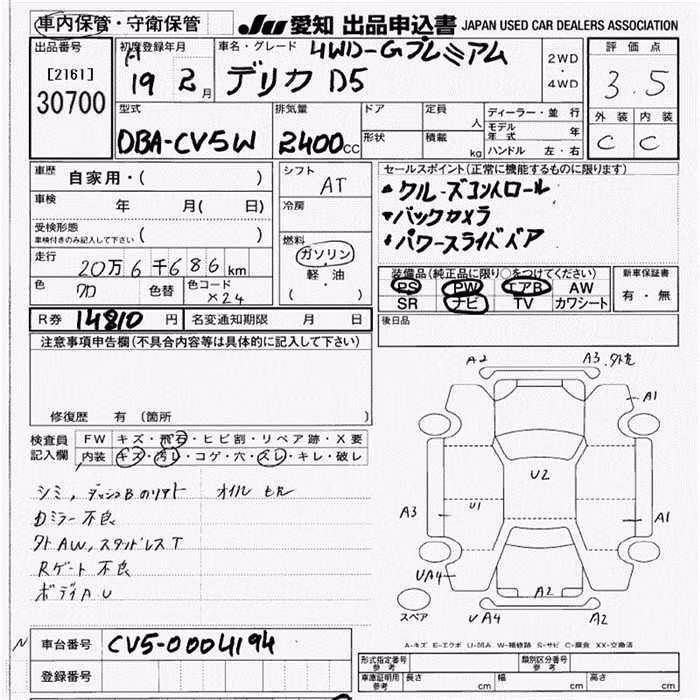 車内保管・守衛保管 JU 愛知 出品申込書 JAPAN USED CAR DEALERS ASSOCIATION
出品番号 初度登録年月 車名・グレード 4WD-Gプレミアム 2WD・4WD 評価点
[2161] 19 2月 デリカ D5 3.5
30700 型式 排気量 ドア 定員 人 ディーラー・並行 外装 内装
DBA-CV5W 2400cc 形状 積載 kg モデル年式 年 C C
ハンドル 左・右
車歴 自家用・( ) シフト AT セールスポイント(正常に機能するものに限ります)
車検 年 月( 日) 冷房 ・クルーズコントロール
受検形態 ( ) ・バックカメラ
車検付きのみ記入して下さい 燃料 ・パワースライドドア
走行 20万6千686km ガソリン
色 クロ 色替 色コード X24 軽・油 ( )
装備品(純正品に限り○をつけてください) 新車保証書
PS PW エアB AW 有・無
SR ナビ TV カワシート
R券 14810円 名変通知期限 月 日 後日品
注意事項申告欄(不具合内容等は具体的に記入して下さい)
修復歴 有 (箇所 )
A2 A3 外克
A1
U2
A3 U1 A1
UA4 A2
スペア UA4 A2
検査員記入欄 FW キズ・飛石・ヒビ割・リペア跡・X要
内装 キズ・汚レ・コゲ・穴・スレ・キレ・破レ
シミ, ダッシュBのリアト オイル モレ
Dミラー不良
外AW,スタッドレスT
Rゲート不良
ボディA.U
A-キズ E-エクボ U-凹み W-補修跡 S-サビ C-腐食 XX-交換済
N 車台番号 CV5-0004194
登録番号
形式指定番号参考 類別区分番号参考
車庫証明用参考 長さ cm 幅 cm 高さ cm